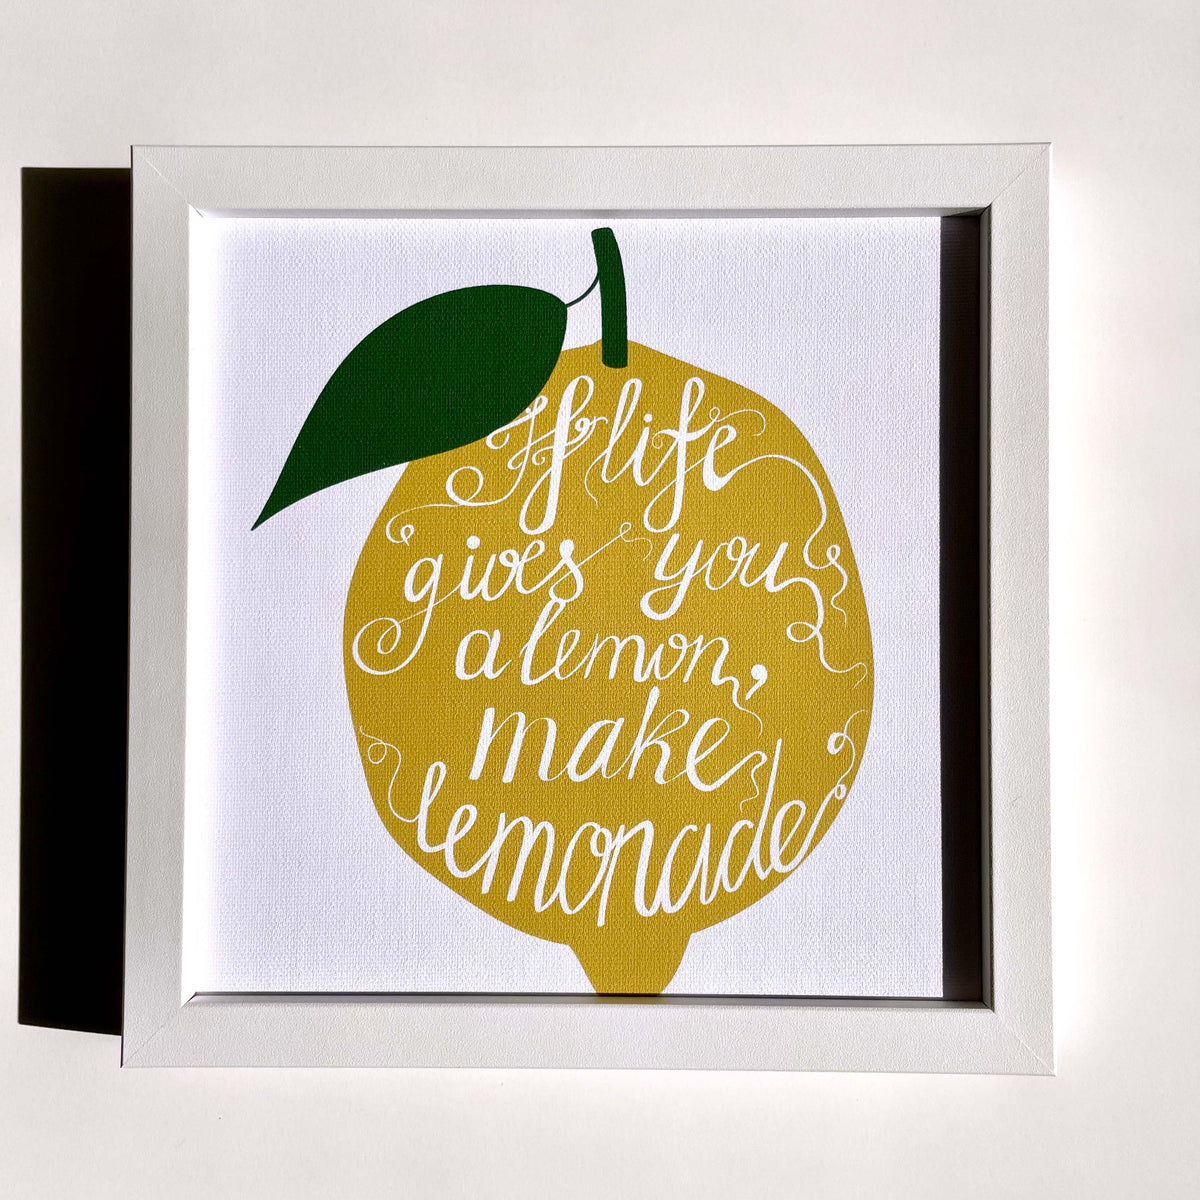 If life
gives you
a lemon,
make
lemonade